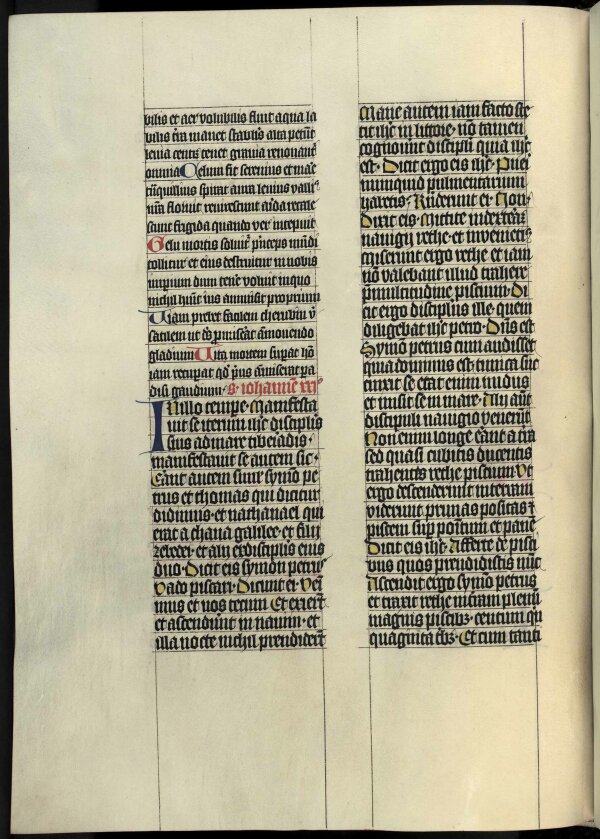 bilis et aer volubilis fluit aqua la
bilis t̄ra manet stabil̓ alta petūt
levia centrū tenet gravia renovant̄
omnia Celum fit serenius et mare
tn̄quillius spirat aura levius vall̓
nr̄a floruit revirescunt arida recale
scunt frigida quando ver intepuit
Gelu mortis solvit̄ p̄nceps mūdi
tollitur et eius destruitur in nobis
imperium dum tenē voluit in quo
nichil hūit ius ammisit proprium
Viam prebet frolem cherubin v̄
satilem ut ds̄ p̄miserāt āmovendo
gladium Vita mortem suꝑat hō
iam recuꝑat qd̄ p̄us āmiserat pa
disi gaudium. S. Iohannē xxi
In illo tempe. Manifesta
vit se iterum ihc̄ discipl̓is
suis ad mare tiberiadis.
manifestavit se autem sic.
Erant autem simł symō pe
trus et thomas qui dicitur
didimus. et nathanael qui
erat a chana galilee. et filij
zebedei. et alij ex discipl̓is eius
duo. Dicit eis symon petrus
Vado piscari. Dicunt ei. Veni
mus et nos tecum Et exierūt
et ascendūnt in navim. et
illa nocte nichil prendiderūt
Mane autem iam facto ste
tit ihc̄ in littore. nō tamen
cognoverūt discipl̓i quia ihc̄
est. Dicit ergo eis ihc̄. Pueri
nunquid pulmentarium
habetis. Rn̄derunt ei. Non.
Dixit eis. Mittite in dexterā
navigij rethe. et invenietis
Miserunt ergo rethe et iam
nō valebant illud trahere
p̄ multitudine piscium. Di
cit ergo discipl̓us ille. quem
diligebat ihc̄ petro. Dn̄s est
Symō petrus cum audisset
quia dominus est. tunica suc
cinxit se erat enim nudus
et misit se in mare. Alij aūt
discipuli navigio venerūt
Non enim longe erant a t̄ra
sed quasi cubitis ducentis
trahentes rethe piscium. Ut
ergo descenderunt in terram
viderunt prunas positas et
piscem sup̄ positum et panē.
Dicit eis ihc̄. Afferte de pisci
bus quos prendidistis nūc
Ascendit ergo symō petrus
et traxit rethe in t̄ram plenū
magnis piscibȝ. centum qn̄
quaginta tribȝ. Et cum tanti